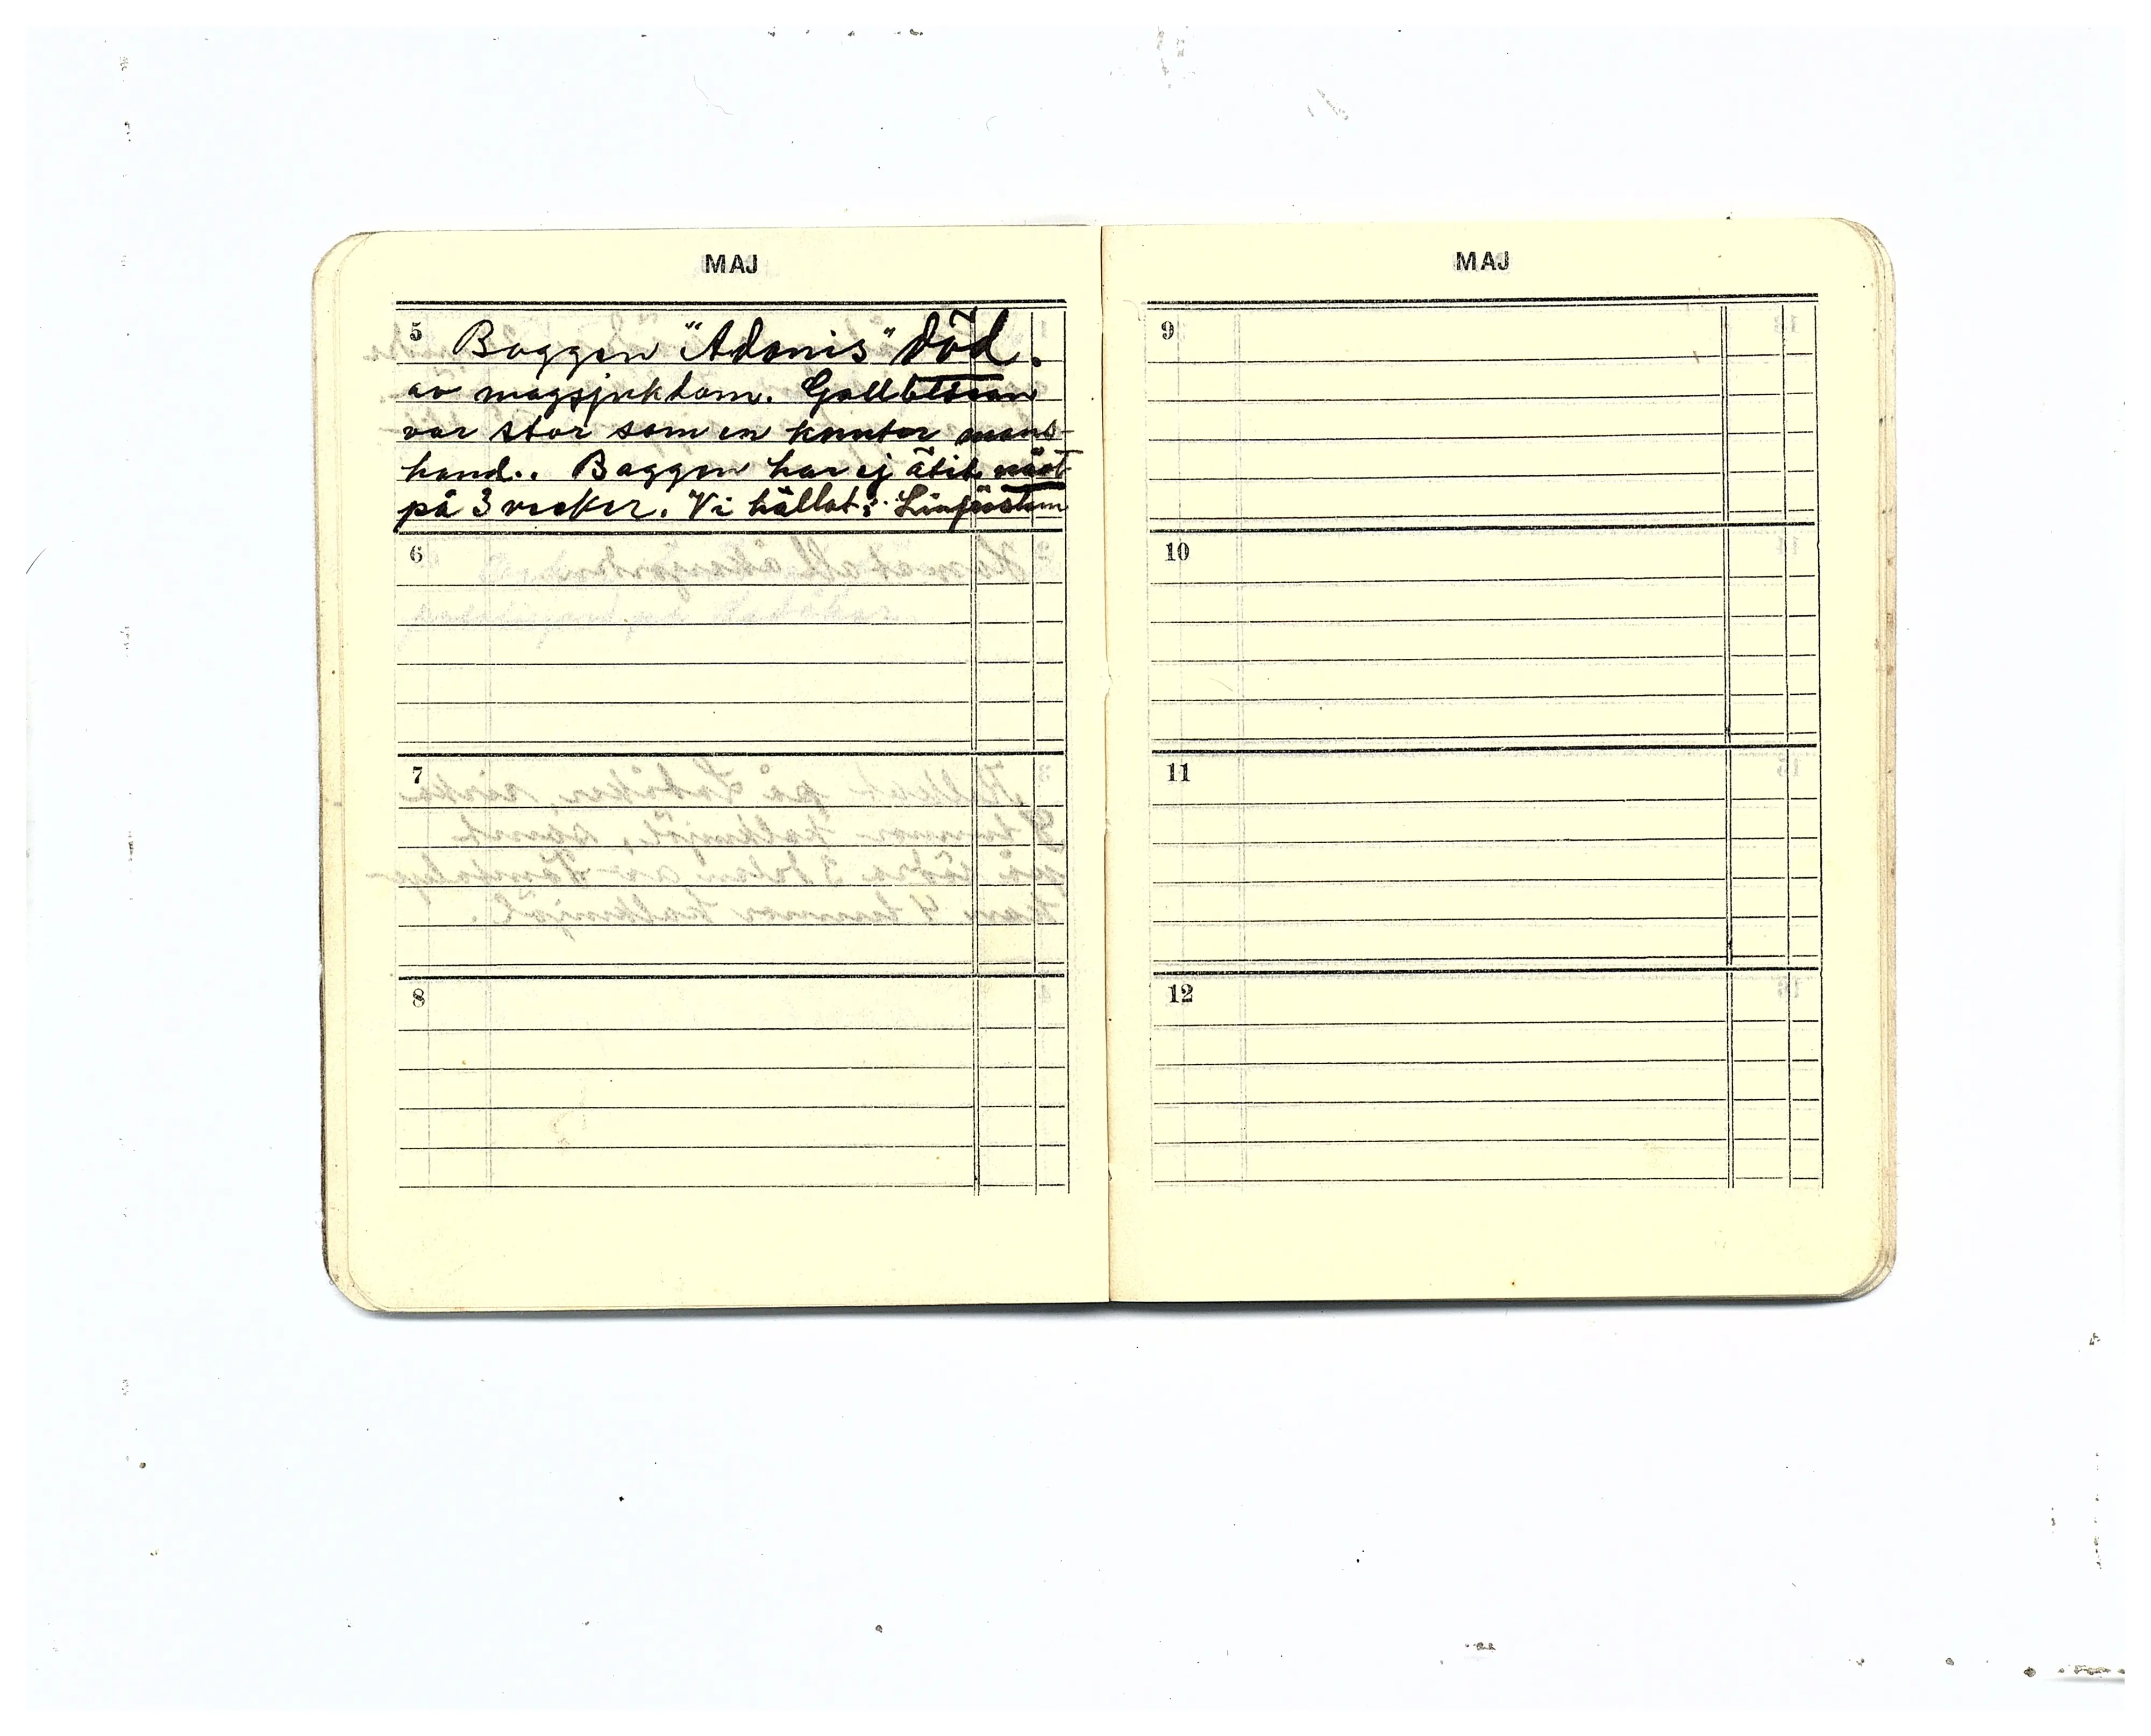 MAJ
5 Baggen "Adonis" död.
av magsjukdom. Gallblåsan
var stor som en knuten mans-
hand.. Baggen har ej ätit näst
på 3 veckor. Vi hällat i
6
7
8
MAJ
9
10
11
12